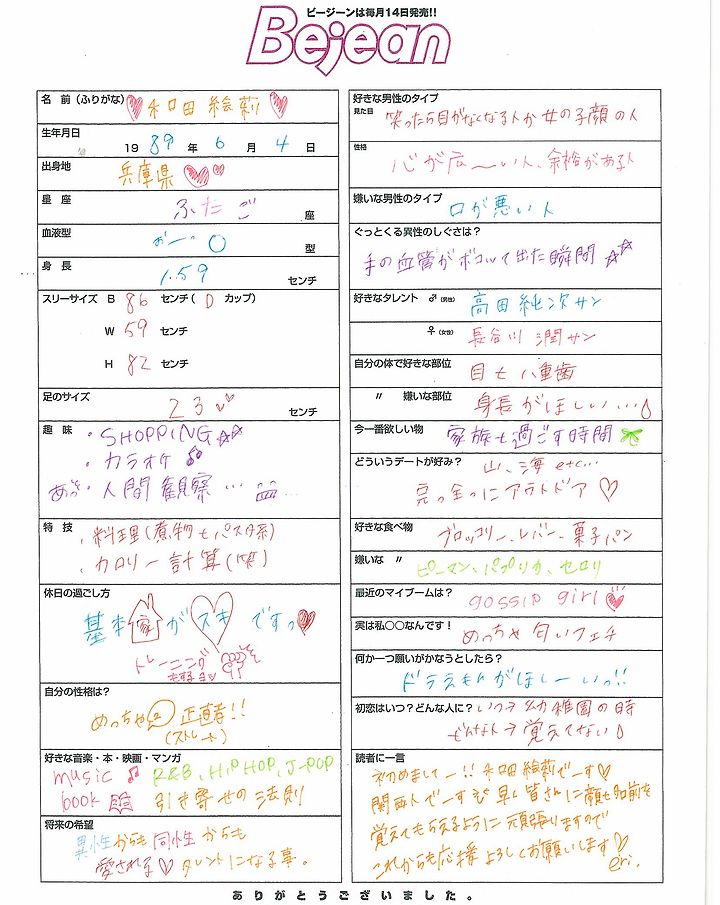 ビージーンは毎月14日発売!!
Bejean
名 前（ふりがな） 和田 絵莉
生年月日
19 89 年 6 月 4 日
出身地
兵庫県
星 座
ふたご 座
血液型
おーっ○ 型
身 長
1.59 センチ
スリーサイズ B 86 センチ( D カップ)
W 59 センチ
H 82 センチ
足のサイズ
23 センチ
趣 味
・SHOPPING
・カラオケ
・人間観察…
特 技
・料理(煮物もパスタ系)
・カロリー計算(笑)
休日の過ごし方
基本家がスキですっ
トレーニング
も好きョッ
自分の性格は？
めっちゃ 正直者!!
(ストレート)
好きな音楽・本・映画・マンガ
music R&B、HIPHOP、J-POP
book 引き寄せの法則
将来の希望
異性からも同性からも
愛される タレントになる事。
好きな男性のタイプ
見た目
笑ったら目がなくなる人か女の子顔の人
性格
心が広〜い人、余裕がある人
嫌いな男性のタイプ
口が悪い人
ぐっとくる異性のしぐさは？
手の血管がボコッて出た瞬間
好きなタレント ♂(男性) 高田純次サン
♀(女性) 長谷川潤サン
自分の体で好きな部位
目も八重歯
〃 嫌いな部位
身長がほしい…
今一番欲しい物
家族も過ごす時間
どういうデートが好み？
山、海 etc…
完っ全にアウトドア
好きな食べ物
ブロッコリー、レバー、菓子パン
嫌いな 〃
ピーマン、パプリカ、セロリ
最近のマイブームは？
gossip girl
実は私○○なんです！
めっちゃ匂いフェチ
何か一つ願いがかなうとしたら？
ドラえもんがほしーいっ!!
初恋はいつ？どんな人に？
いつ→幼稚園の時
どんな人→覚えてない
読者に一言
初めましてー!! 和田絵莉でーす♡
関西人でーす 早く皆さんに顔も名前を
覚えてもらえるように頑張りますので
これからも応援よろしくお願いします♡
eri.
ありがとうございました。